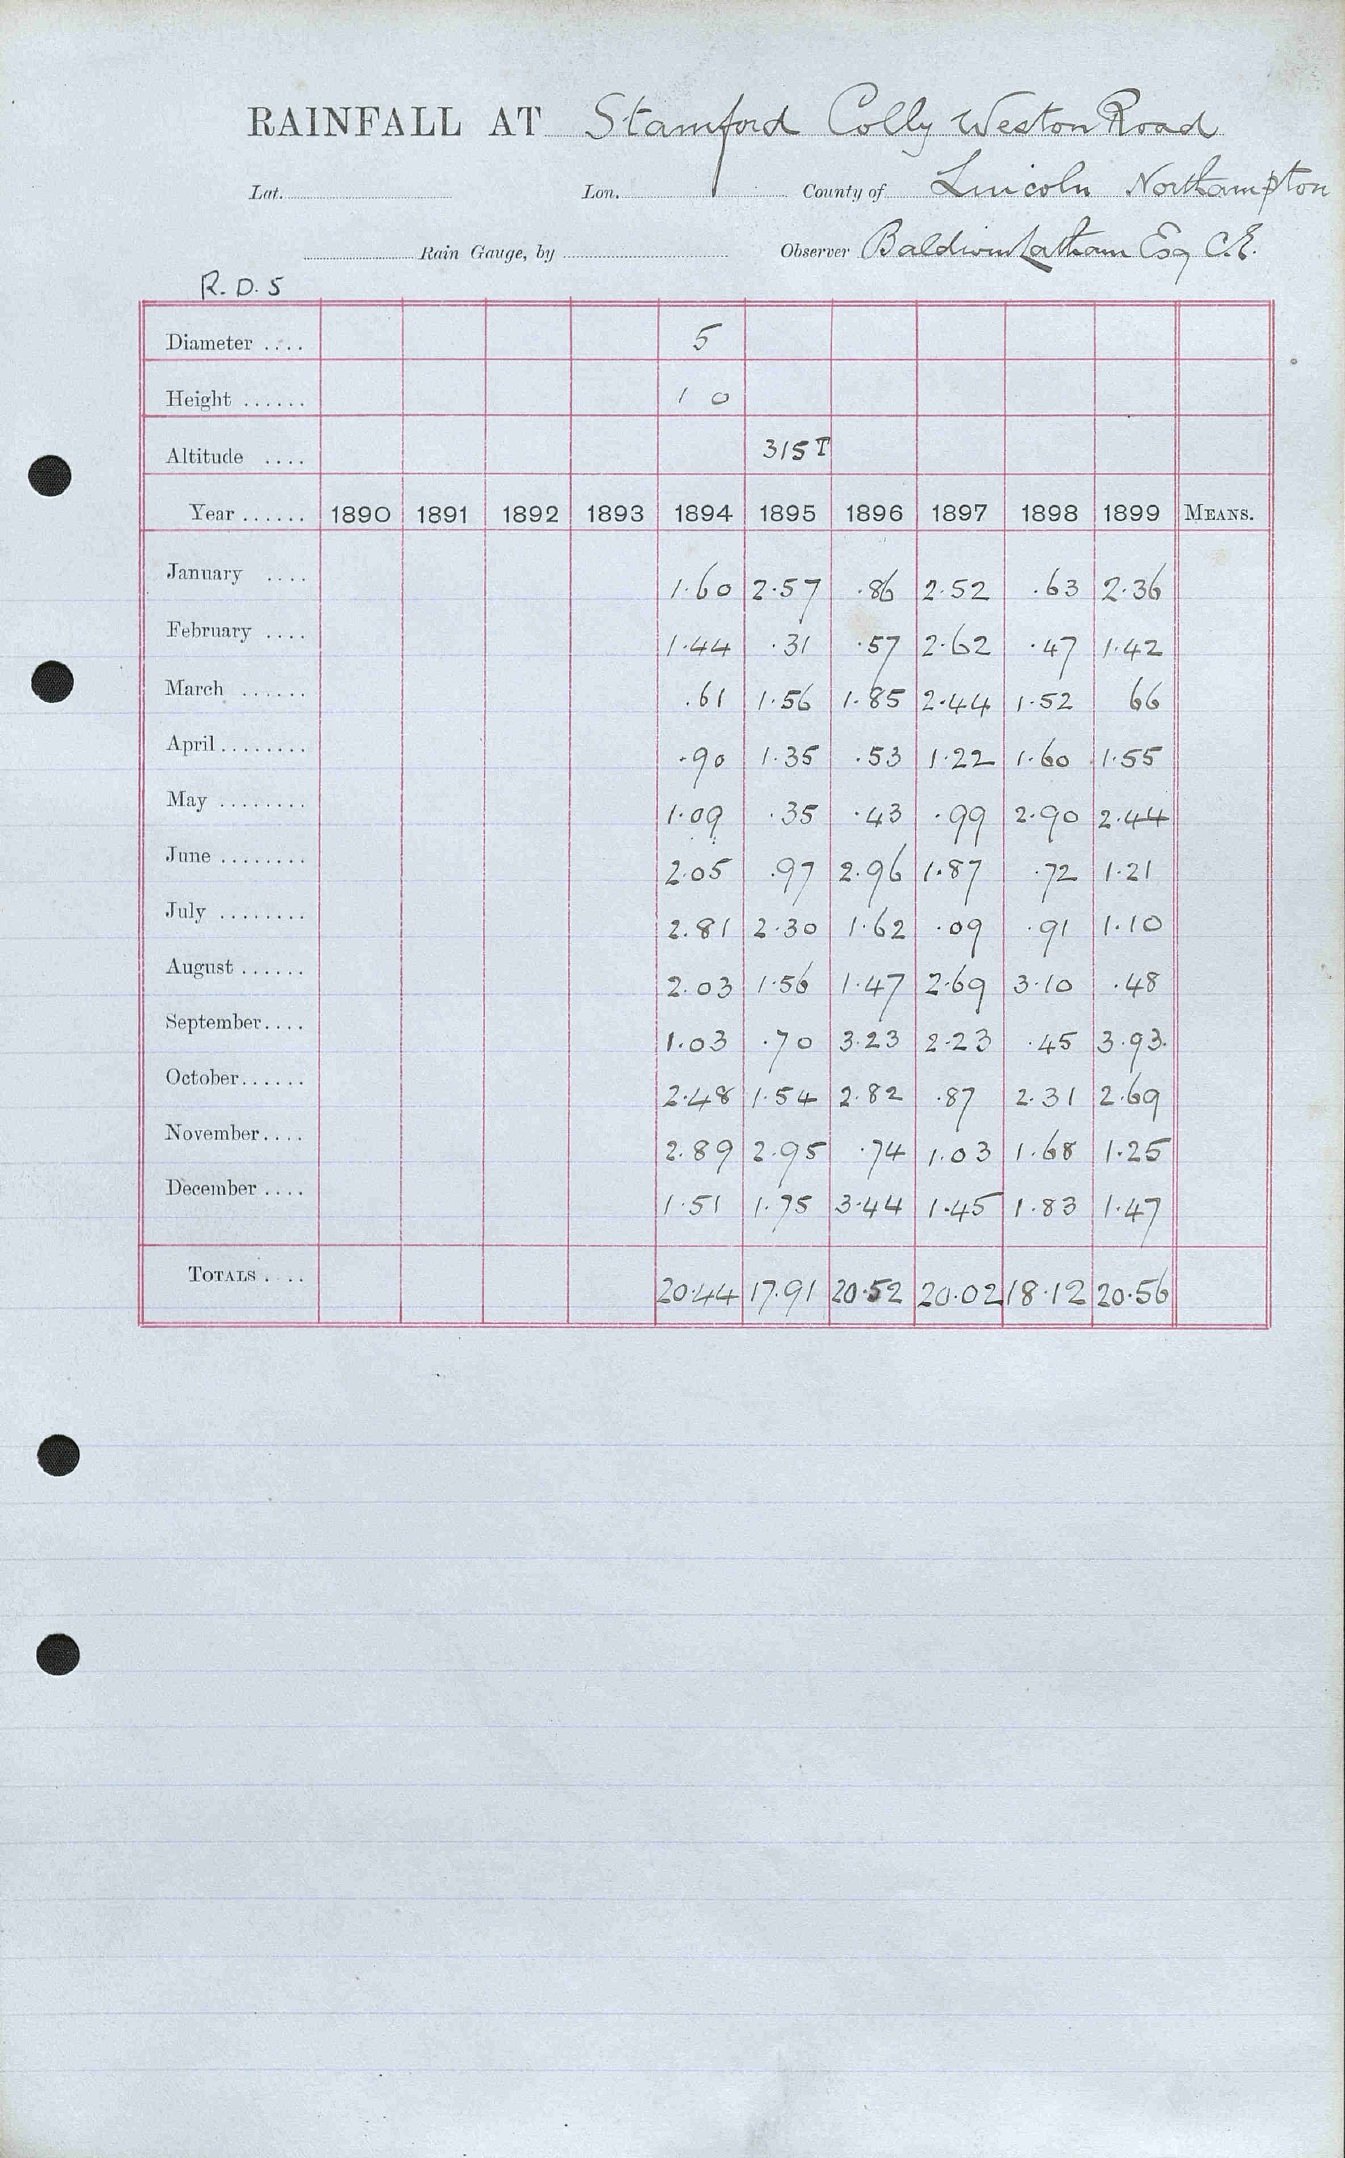 RAINFALL AT Stamford Colly Weston Road
Lat. Lon. County of Lincoln Northampton
Rain Gauge, by Observer Baldwin Latham Esq C.E.
R. D. 5
Diameter .... 5
Height ...... 1 0
Altitude .... 315 T
Year ...... 1890 1891 1892 1893 1894 1895 1896 1897 1898 1899 MEANS.
January .... 1.60 2.57 .86 2.52 .63 2.36
February .... 1.44 .31 .57 2.62 .47 1.42
March ...... .61 1.56 1.85 2.44 1.52 66
April ........ .90 1.35 .53 1.22 1.60 1.55
May ........ 1.09 .35 .43 .99 2.90 2.44
June ........ 2.05 .97 2.96 1.87 .72 1.21
July ........ 2.81 2.30 1.62 .09 .91 1.10
August ...... 2.03 1.56 1.47 2.69 3.10 .48
September .... 1.03 .70 3.23 2.23 .45 3.93.
October ...... 2.48 1.54 2.82 .87 2.31 2.69
November .... 2.89 2.95 .74 1.03 1.68 1.25
December .... 1.51 1.75 3.44 1.45 1.83 1.47
TOTALS .... 20.44 17.91 20.52 20.02 18.12 20.56